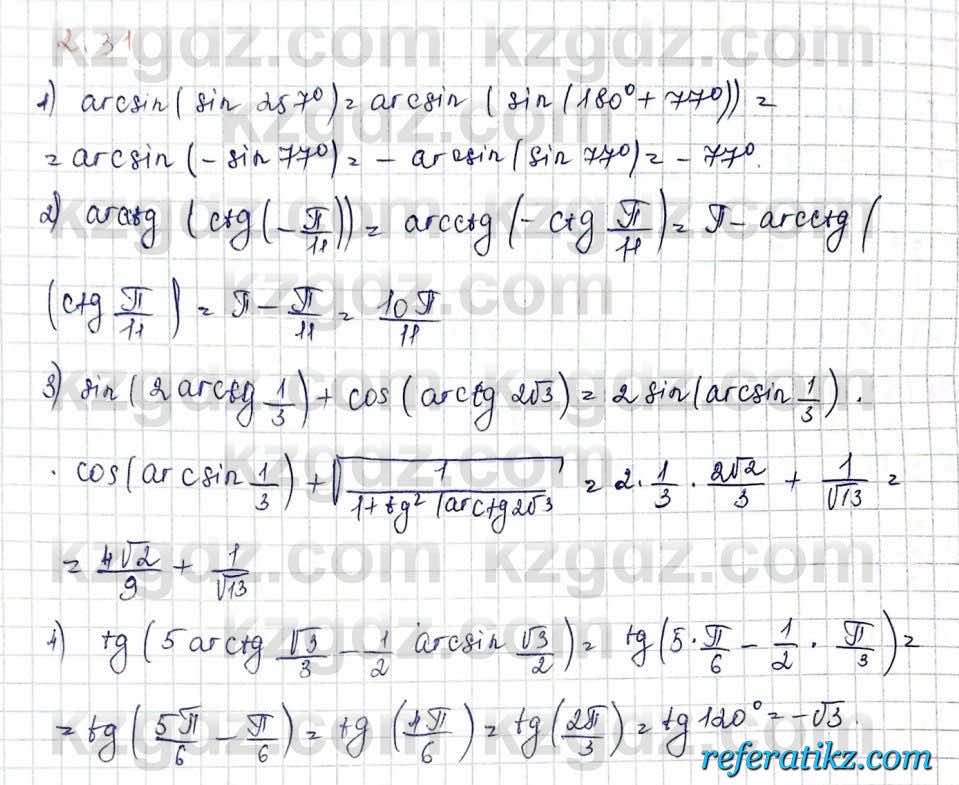 2.31
1) arcsin(sin 257°) = arcsin (sin(180°+77°)) =
= arcsin (-sin 77°) = - arcsin(sin 77°) = -77°.
2) arcctg (ctg(-π/11)) = arcctg (-ctg π/11) = π - arcctg (
(ctg π/11) = π - π/11 = 10π/11
3) sin(2 arcctg 1/3) + cos(arctg 2√3) = 2 sin(arcsin 1/3) ·
· cos(arcsin 1/3) + √(1/(1+tg²(arctg 2√3 = 2·1/3·2√2/3 + 1/√13 =
= 4√2/9 + 1/√13
4) tg(5 arctg √3/3 - 1/2 arcsin √3/2) = tg(5·π/6 - 1/2·π/3) =
= tg(5π/6 - π/6) = tg(4π/6) = tg(2π/3) = tg 120° = -√3.
referatikz.com
kzgdz.com